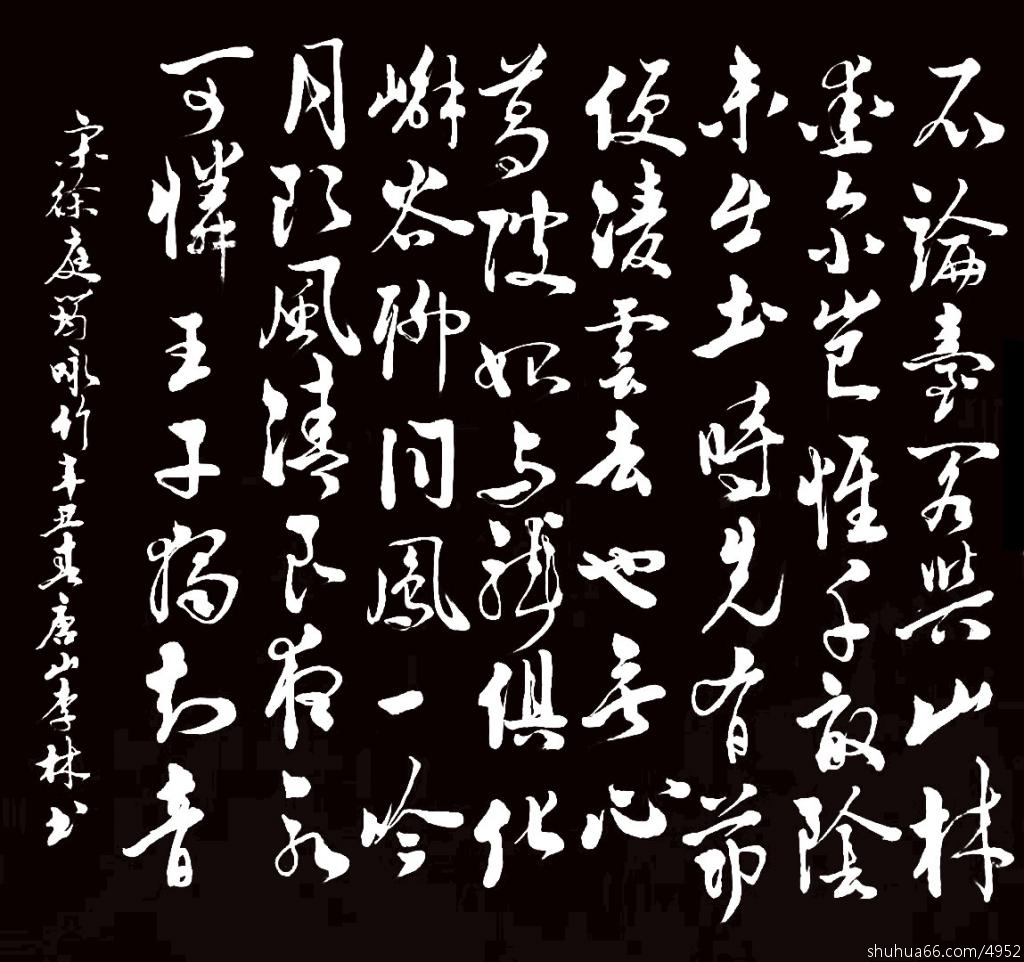 不論臺閣與山林
愛尔豈惟千畝陰
未出土時先有節
便淩雲去也無心
葛陂始与龍俱化
嶰谷聊同鳳一吟
月朗風清良夜永
可憐王子獨知音
宋徐庭筠咏竹辛丑春唐山李林书
shuhua66.com/4952